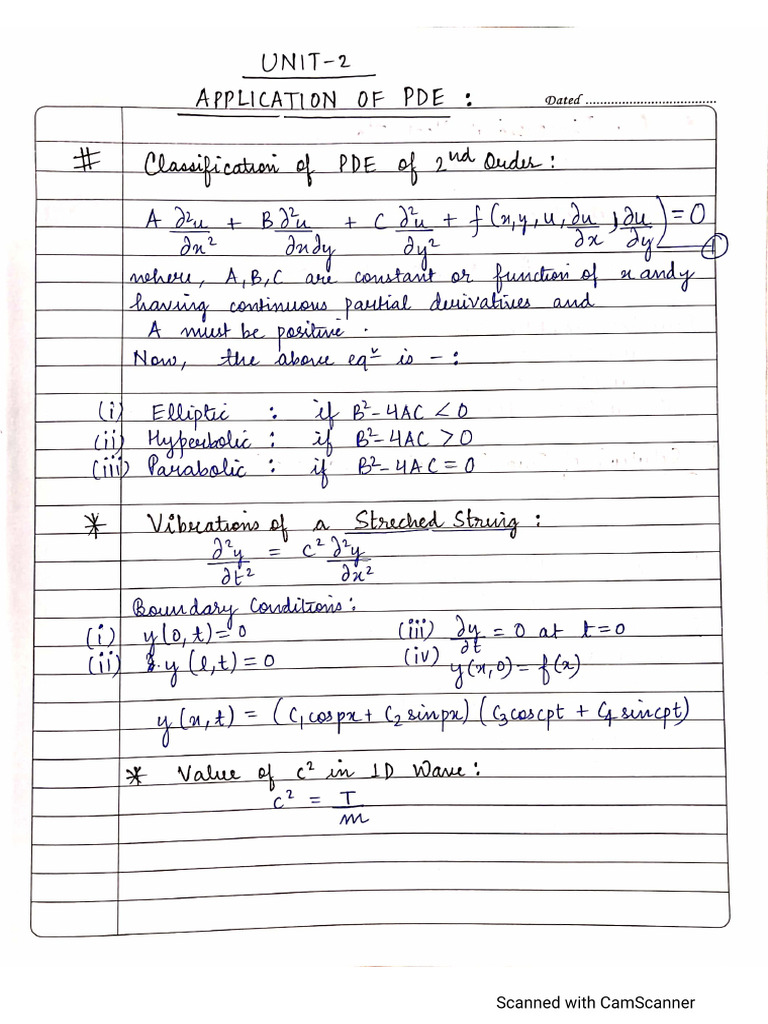 UNIT-2
APPLICATION OF PDE :
Dated ....................................
# Classification of PDE of 2nd Order :
A ∂²u/∂x² + B ∂²u/∂x∂y + C ∂²u/∂y² + f(x, y, u, ∂u/∂x, ∂u/∂y) = 0 — ①
where, A, B, C are constant or function of x and y
having continuous partial derivatives and
A must be positive .
Now, the above eqⁿ is - :
(i) Elliptic : if B² - 4AC < 0
(ii) Hyperbolic : if B² - 4AC > 0
(iii) Parabolic : if B² - 4AC = 0
* Vibrations of a Streched String :
∂²y/∂t² = c² ∂²y/∂x²
Boundary Conditions :
(i) y(0, t) = 0 (iii) ∂y/∂t = 0 at t = 0
(ii) y(l, t) = 0 (iv) y(x, 0) = f(x)
y(x, t) = (C₁cospx + C₂sinpx) (C₃coscpt + C₄sincpt)
* Value of c² in 1D Wave :
c² = T/m
Scanned with CamScanner